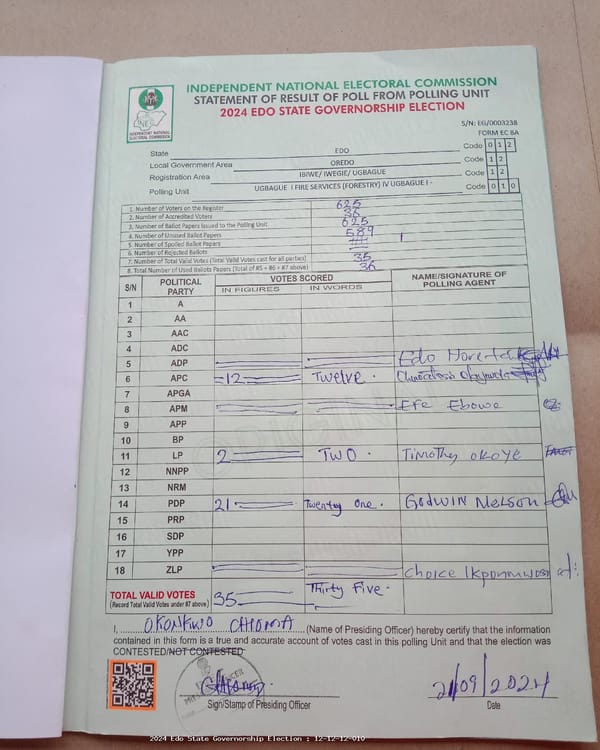 INDEPENDENT NATIONAL ELECTORAL COMMISSION
STATEMENT OF RESULT OF POLL FROM POLLING UNIT
2024 EDO STATE GOVERNORSHIP ELECTION
INEC
INDEPENDENT NATIONAL ELECTORAL COMMISSION
S/N: EG/0003238
FORM EC 8A
State EDO Code 0 1 2
Local Government Area OREDO Code 1 2
Registration Area IBIWE/ IWEGIE/ UGBAGUE Code 1 2
Polling Unit UGBAGUE I FIRE SERVICES (FORESTRY) IV UGBAGUE I - Code 0 1 0
1. Number of Voters on the Register 625
2. Number of Accredited Voters 36
3. Number of Ballot Papers Issued to the Polling Unit 625
4. Number of Unused Ballot Papers 589
5. Number of Spoiled Ballot Papers
6. Number of Rejected Ballots 1
7. Number of Total Valid Votes (Total Valid Votes cast for all parties) 35
8. Total Number of Used Ballots Papers (Total of #5 + #6 + #7 above) 36
S/N POLITICAL PARTY VOTES SCORED NAME/SIGNATURE OF POLLING AGENT
IN FIGURES IN WORDS
1 A
2 AA
3 AAC
4 ADC
5 ADP Edo
6 APC =12 Twelve.
7 APGA
8 APM Efe Ebowe
9 APP
10 BP
11 LP 2 TWO. TIMOTHY OKOYE
12 NNPP
13 NRM
14 PDP 21 Twenty One. GODWIN NELSON
15 PRP
16 SDP
17 YPP
18 ZLP Choice
TOTAL VALID VOTES 35 Thirty Five.
(Record Total Valid Votes under #7 above)
I, OKONKWO CHIOMA (Name of Presiding Officer) hereby certify that the information
contained in this form is a true and accurate account of votes cast in this polling Unit and that the election was
CONTESTED/NOT CONTESTED
21/09/2024
Sign/Stamp of Presiding Officer Date
2024 Edo State Governorship Election : 12-12-12-010